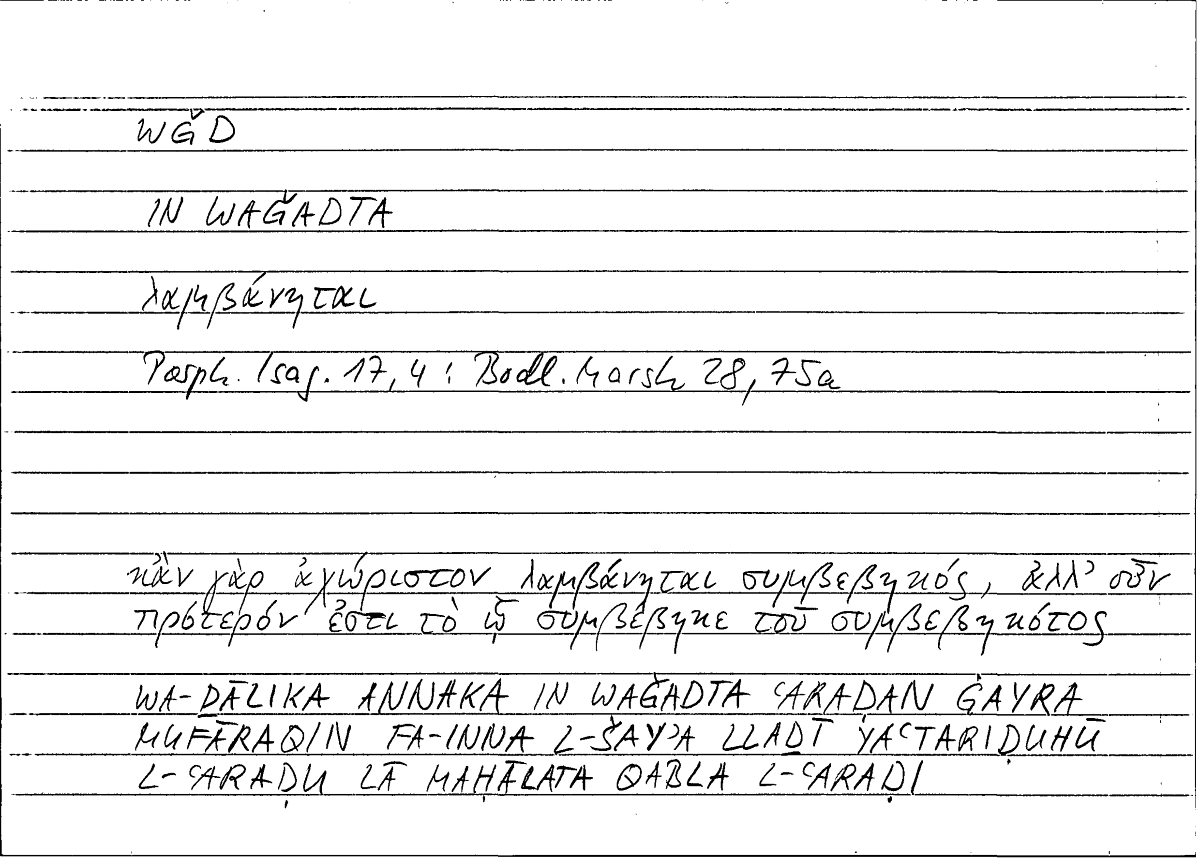 WǦD
IN WAǦADTA
λαμβάνηται
Porph. Isag. 17, 4 : Bodl. Marsh 28, 75a
κἂν γὰρ ἀχώριστον λαμβάνηται συμβεβηκός, ἀλλ' οὖν
πρότερόν ἐστι τὸ ᾧ συμβέβηκε τοῦ συμβεβηκότος
WA-ḎĀLIKA ANNAKA IN WAǦADTA ʿARAḌAN ĠAYRA
MUFĀRAQIN FA-INNA L-ŠAYʾA LLAḎĪ YAʿTARIḌUHŪ
L-ʿARAḌU LĀ MAḤĀLATA QABLA L-ʿARAḌI